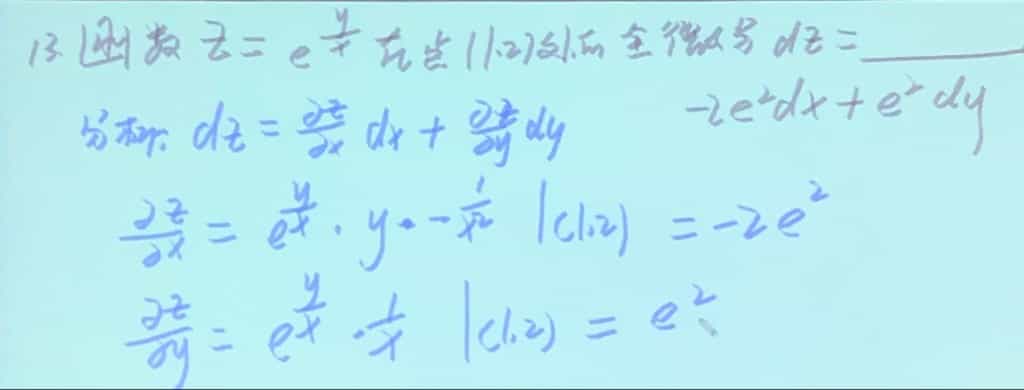 13. 函数 z = e^{\frac{y}{x}} 在点(1.2)处的全微分 dz = ______
-2e²dx + e²dy
分析: dz = \frac{∂z}{∂x} dx + \frac{∂z}{∂y} dy
\frac{∂z}{∂x} = e^{\frac{y}{x}} · y · -\frac{1}{x²} |(1.2) = -2e²
\frac{∂z}{∂y} = e^{\frac{y}{x}} · \frac{1}{x} |(1.2) = e²